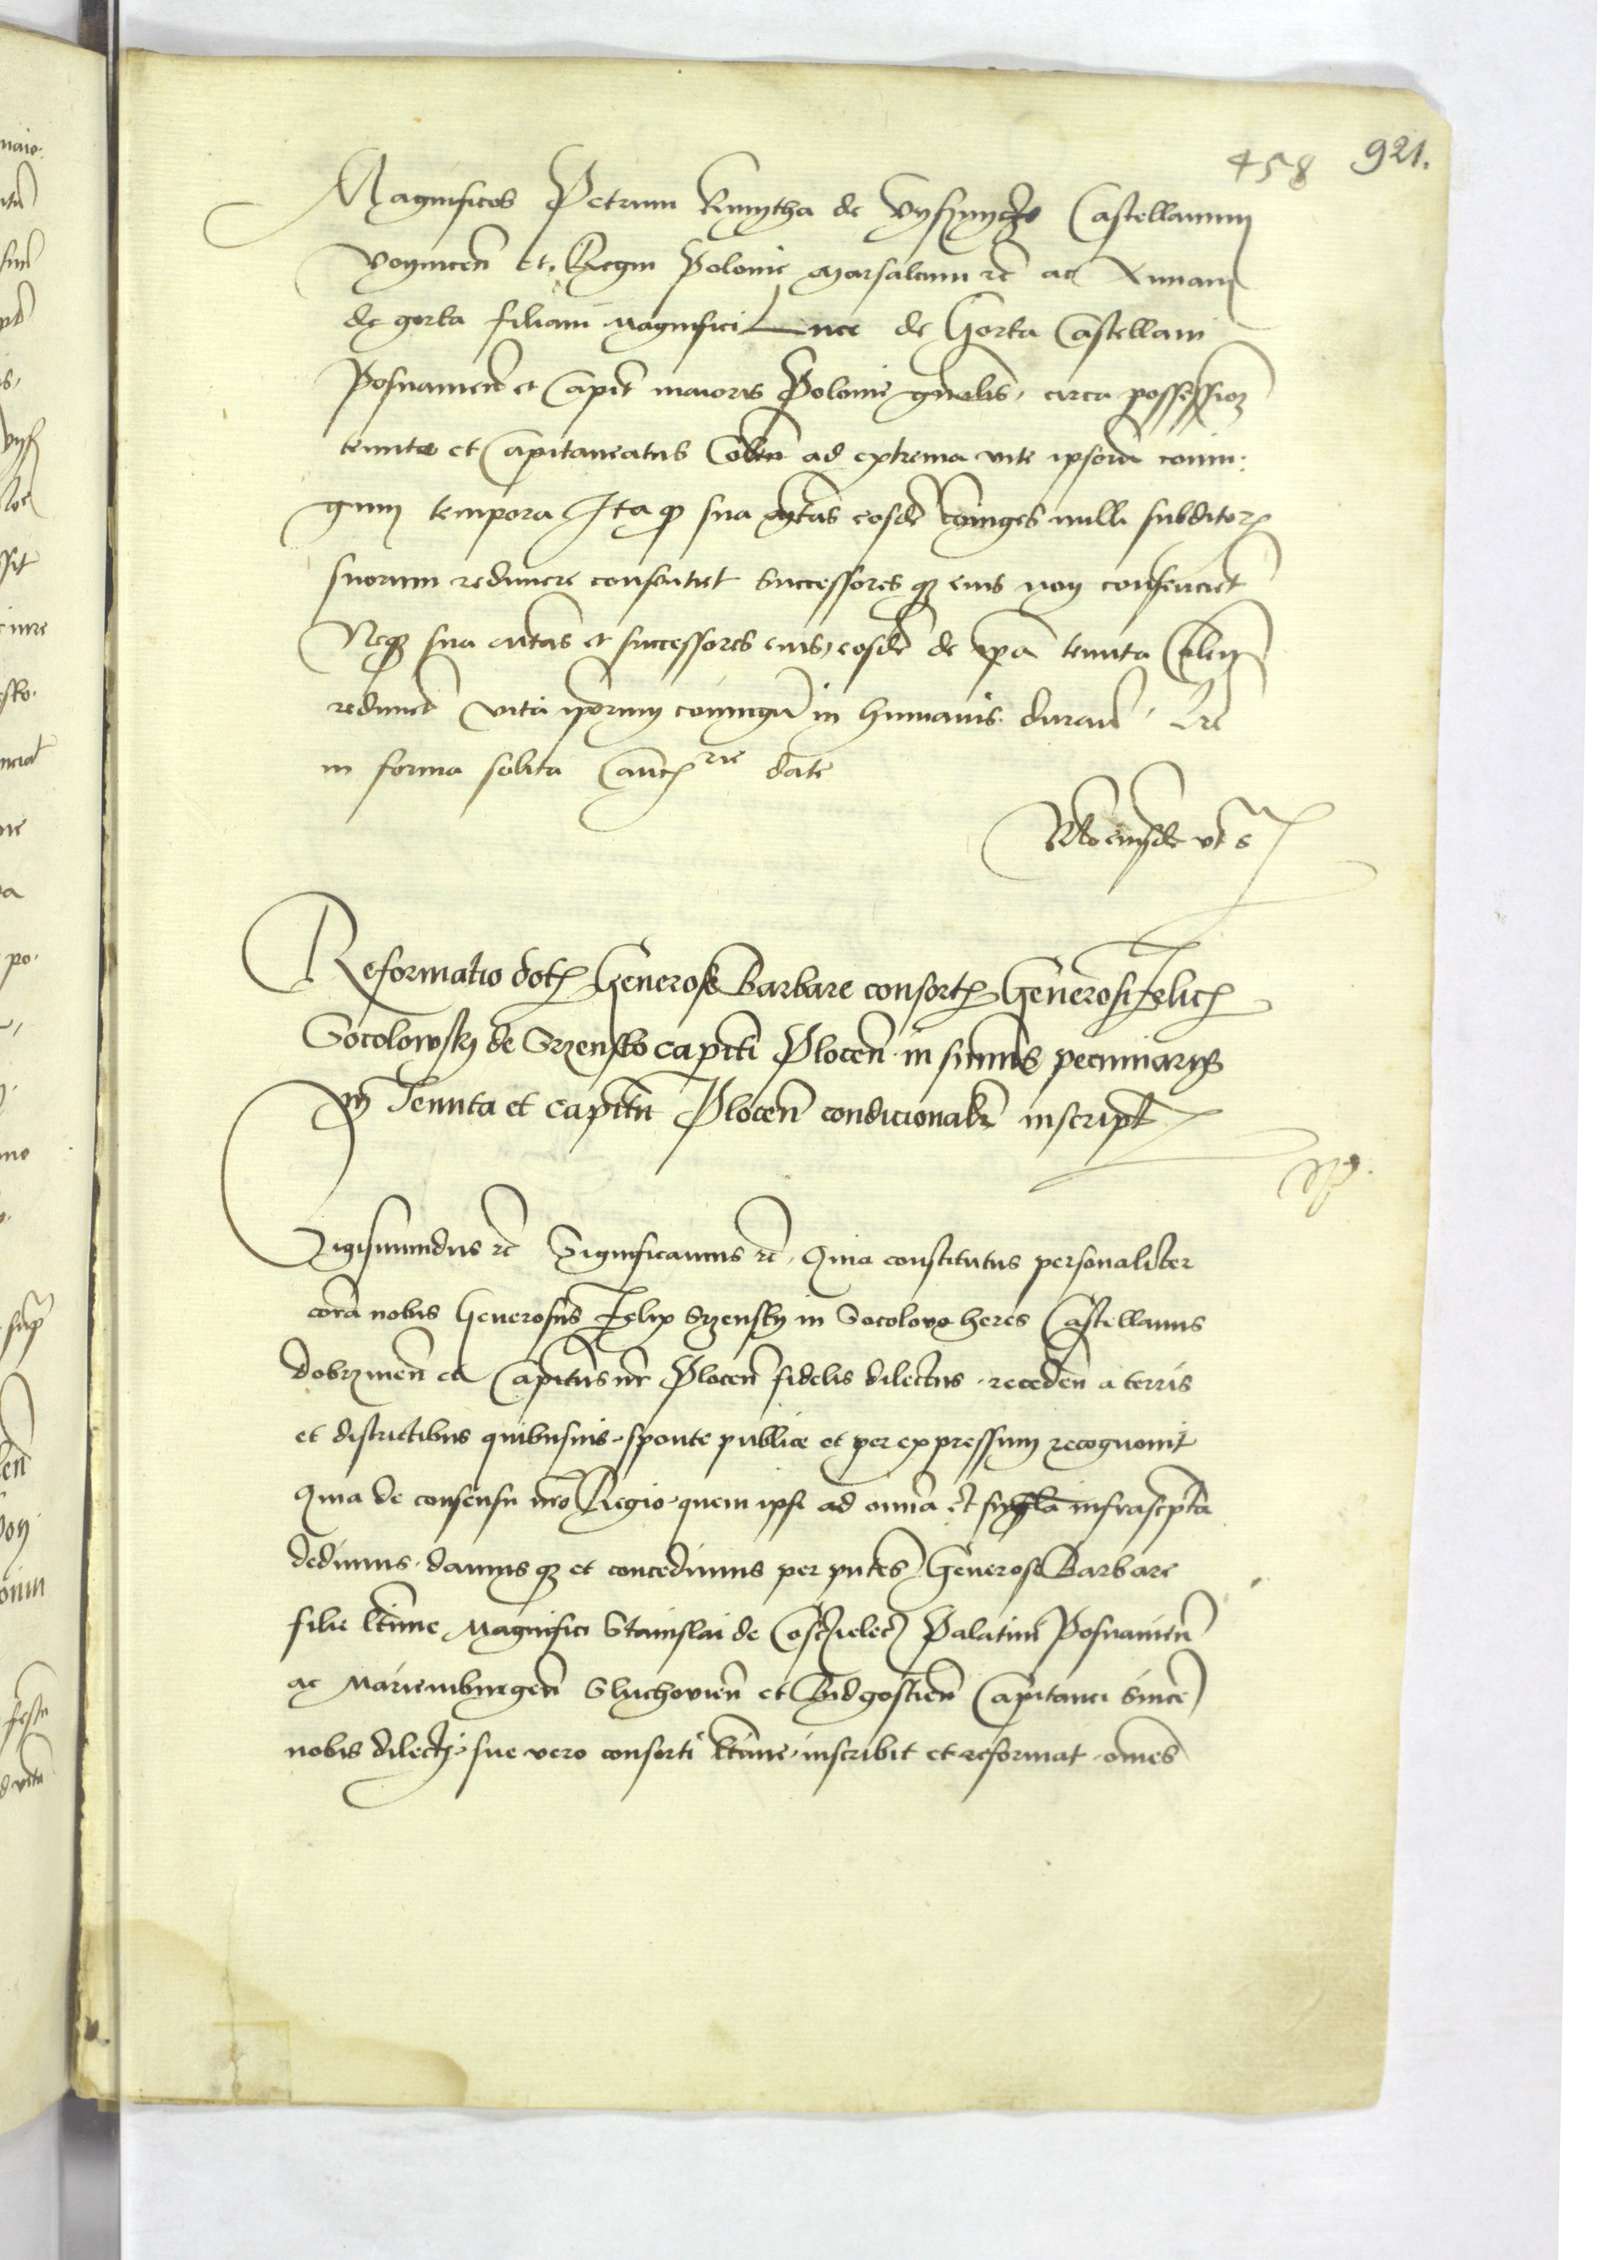 458 921.
Magnificos Petrum Kmytha de Vyssnycze Castellanum
Voynicen et Regni Polonie Marsalcum etc ac Annam
de gorka filiam Magnifici Luce de Gorka Castellani
Posnanien et Capit maioris Polonie gnalis, circa possession
tenute et Capitaneatus Colen ad extrema vite ipsoru coniu:
gum tempora Ita q sua mtas eosde coniuges nulli subditor
suorum redimere consentiet Successores q eius non consencient
Neq sua mtas et successores eius, eosde de ipa tenuta Colen
rediment vita ipsorum coniugu in humanis duran, Lre
in forma solita Canc rie date
Rlo eiusde vt s
Reformatio dotis Generose Barbare consortis Generosi Felicis
Socolowsky de Srzensko Capiti Plocen in summis pecuniarys
In Tenuta et Capitu Plocen condicionalr inscript
Sigismundus etc Significamus etc, Quia constitutus personaliter
cora nobis Generosus Felix Srzensky in Socolowo heres Castellanus
dobrzinen et Capitus nr Plocen fidelis dilectus, receden a terris
et districtibus quibusuis, sponte publice et per expressum recognouit
Quia de consensu nro Regio, quem ipsi ad omia et syngla infrascpta
dedimus, damus q et concedimus per pntes Generose Barbare
filie ltime Magnifici Stanislai de Cosczielecz Palatini Posnanien
ac Mariemburgen Sluchovien et Bidgostien Capitanei sincere
nobis dilecti, sue vero consorti ltime, inscribit et reformat, omes